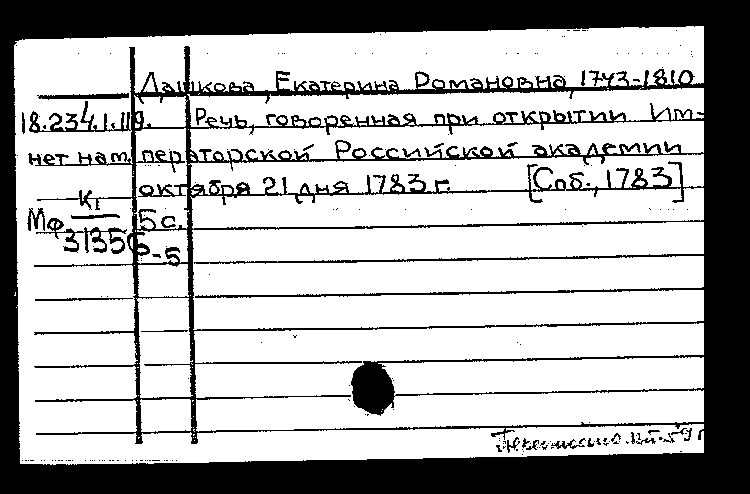 Дашкова, Екатерина Романовна, 1743-1810
18.234.1.119. Речь, говоренная при открытии Им=
нет нат. ператорской Российской академии
октября 21 дня 1783 г. [Спб., 1783]
Мф К1 5 с.
31356-5